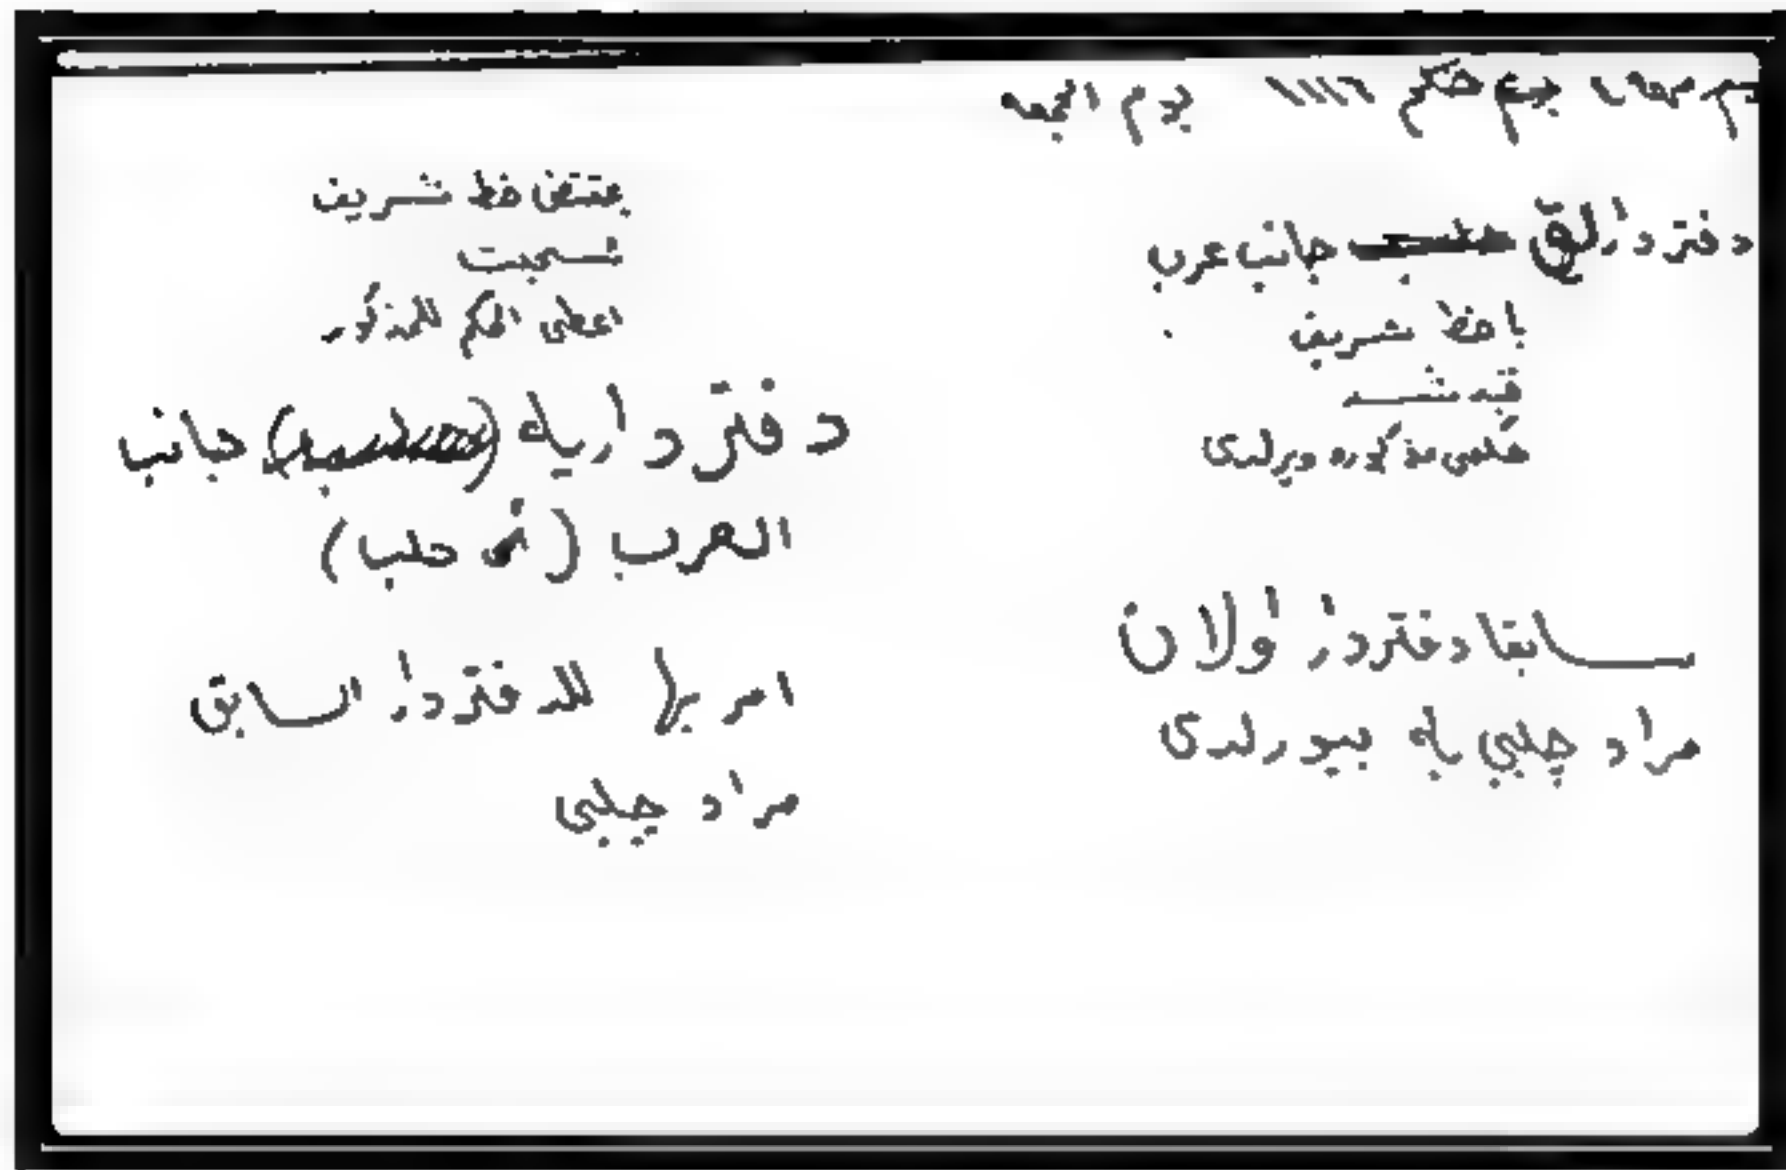 حكم ١١١٦ يوم الجمعه
دفتردارلق حلب جانب عرب
با خط شريف
قيد شد
حكمى مذكوره ويرلدى
سابقا دفتردار اولان
مراد چلبي يه بيورلدى
بمقتضى خط شريف
سجلت
اعطى الحكم للمذكور
دفترداريك () جانب
العرب ( حلب)
امر بها للدفتردار السابق
مراد چلبى